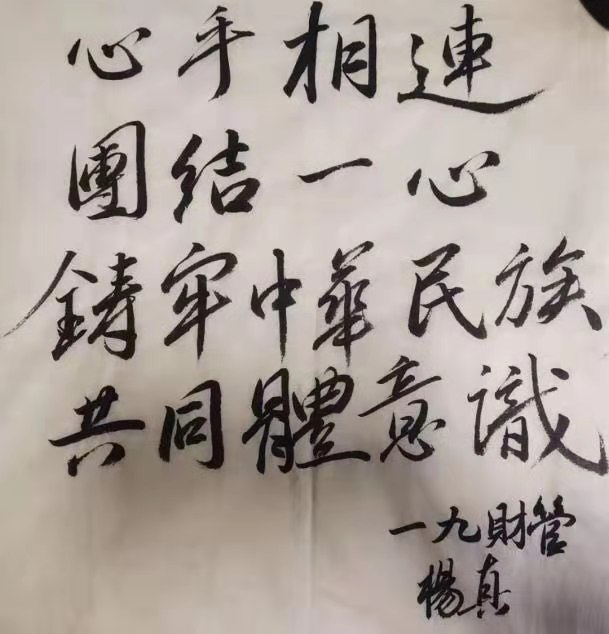 心手相連
團結一心
鑄牢中華民族
共同體意識
一九財管
楊真